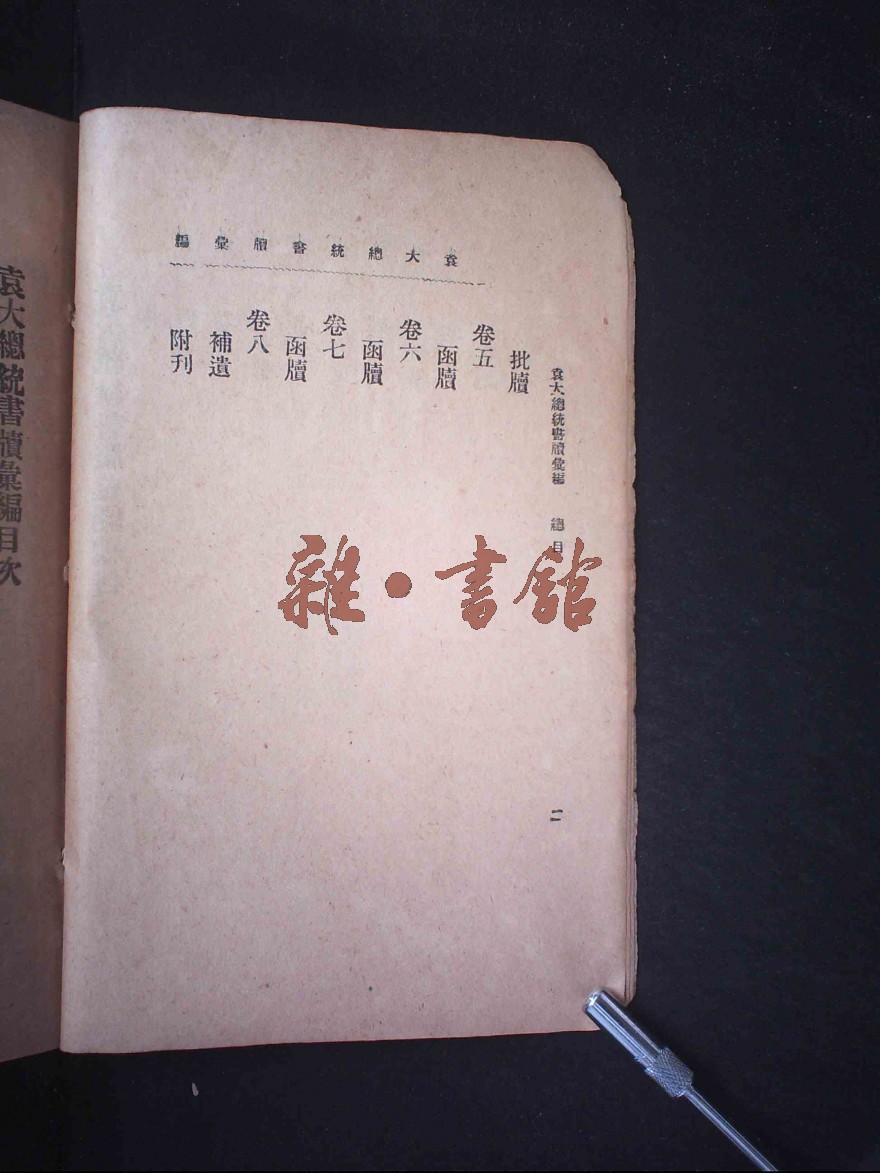 袁大總統書牘彙編
袁大總統書牘彙編 總目
二
批牘
卷五
函牘
卷六
函牘
卷七
函牘
卷八
補遺
附刊
雜·書館
袁大總統書牘彙編目次